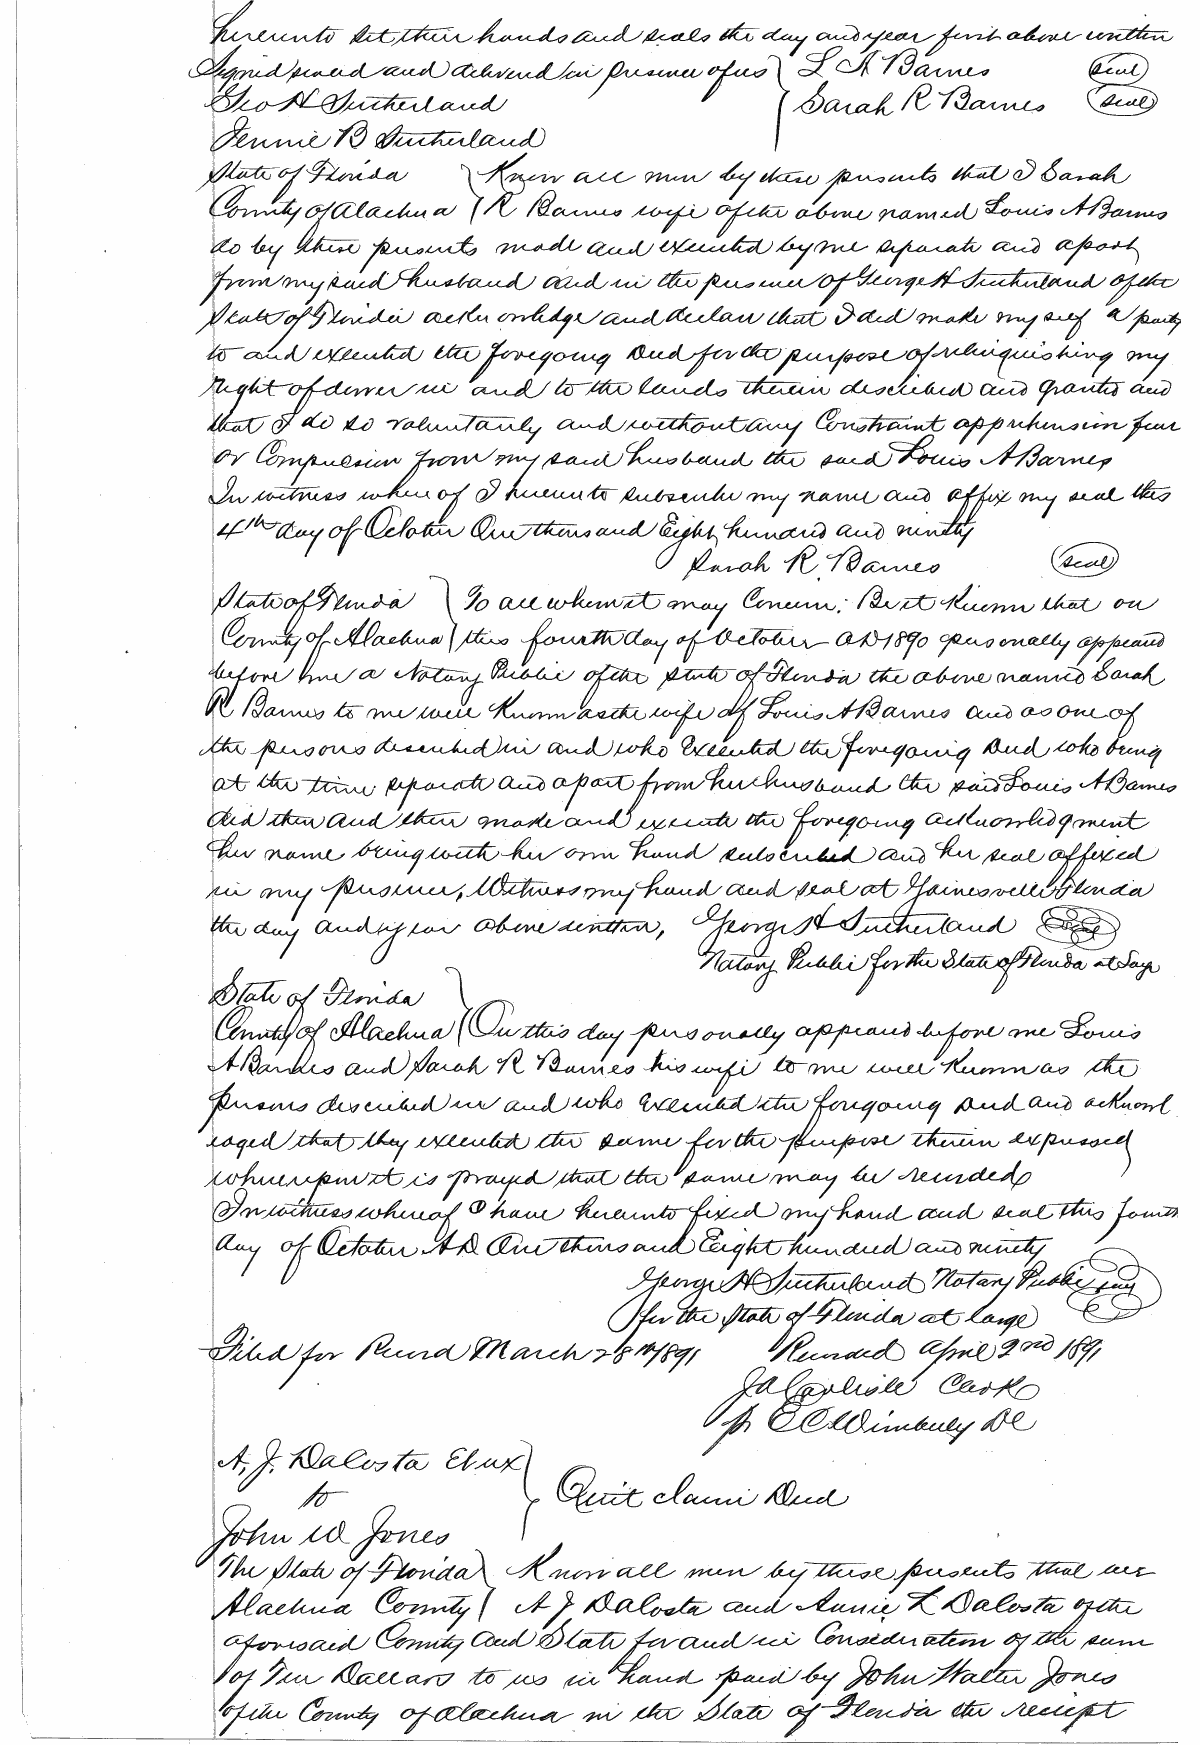 hereunto set their hands and seals the day and year first above written
Signed sealed and delivered in presence of us } L A Barnes (seal)
Geo H Sutherland { Sarah R Barnes (seal)
Jennie B Sutherland
State of Florida } Know all men by these presents that I Sarah
County of Alachua } R Barnes wife of the above named Louis A Barnes
do by these presents made and executed by me separate and apart
from my said husband and in the presence of George H Sutherland of the
State of Florida acknowledge and declare that I did make myself a party
to and executed the foregoing Deed for the purpose of relinquishing my
right of dower in and to the lands therein described and granted and
that I do so voluntarily and without any Constraint apprehension fear
or Compulsion from my said husband the said Louis A Barnes
In witness where of I hereunto subscribe my name and affix my seal this
4th day of October One thousand Eight hundred and ninety
Sarah R. Barnes (seal)
State of Florida } To all whom it may Concern: Be it Known that on
County of Alachua } this fourth day of October AD 1890 personally appeared
before me a Notary Public of the State of Florida the above named Sarah
R Barnes to me well Known as the wife of Louis A Barnes and as one of
the persons described in and who Executed the foregoing Deed who being
at the time separate and apart from her husband the said Louis A Barnes
did then and there make and execute the foregoing acknowledgment
her name being with her own hand subscribed and her seal affixed
in my presence, Witness my hand and seal at Gainesville Florida
the day and year above written, George H Sutherland
Notary Public for the State of Florida at Large
State of Florida }
County of Alachua } On this day personally appeared before me Louis
A Barnes and Sarah R Barnes his wife to me well Known as the
persons described in and who Executed the foregoing Deed and acknowl
edged that they executed the same for the purpose therein expressed
whereupon it is prayed that the same may be recorded
In witness whereof I have hereunto fixed my hand and seal this fourth
day of October A.D. One thousand Eight hundred and ninety
George H Sutherland Notary Public seal
for the State of Florida at large
Filed for Record March 28th 1891 Recorded April 2nd 1891
J A Carlisle Clerk
pr E C Wimberly DC
A. J. DaCosta Et ux }
to } Quit claim Deed
John W Jones
The State of Florida } Know all men by these presents that we
Alachua County } A J DaCosta and Annie L DaCosta of the
aforesaid County and State for and in Consideration of the sum
of Ten Dollars to us in hand paid by John Walter Jones
of the County of Alachua in the State of Florida the receipt